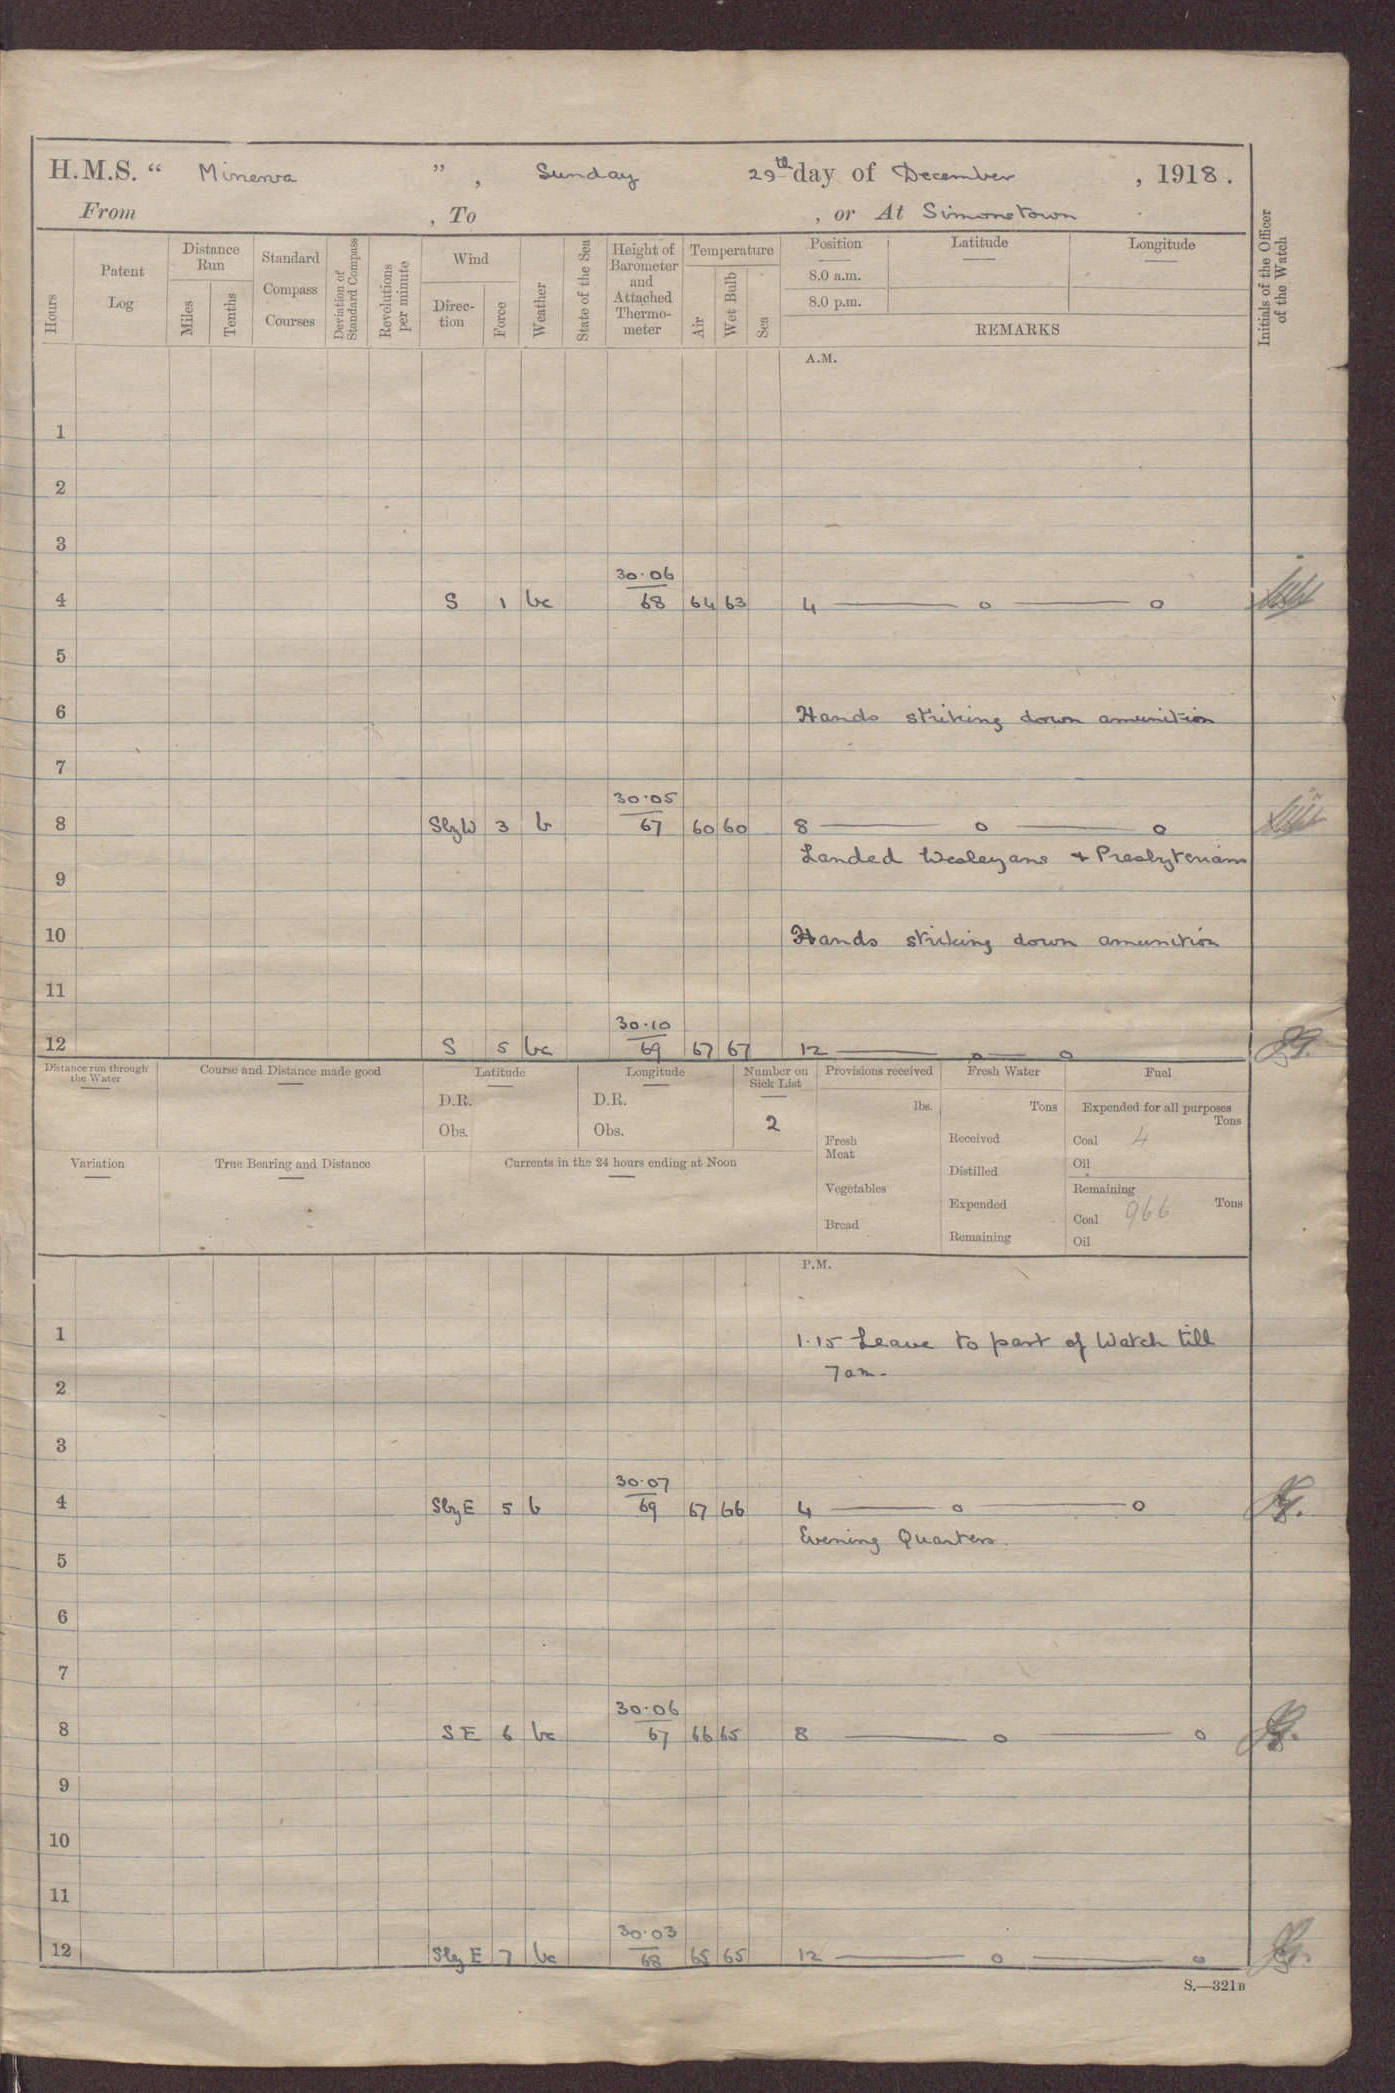 H.M.S. “ Minerva ” , Sunday 29th day of December , 1918.
From , To , or At Simonstown
Hours
Patent Log
Distance Run
Miles
Tenths
Standard Compass Courses
Deviation of Standard Compass
Revolutions per minute
Wind
Direc-tion
Force
Weather
State of the Sea
Height of Barometer and Attached Thermo-meter
Temperature
Air
Wet Bulb
Sea
Position Latitude Longitude
8.0 a.m.
8.0 p.m.
REMARKS
Initials of the Officer of the Watch
A.M.
1
2
3
30.06
4 S 1 bc 68 64 63 4 —— o —— o
5
6 Hands striking down amunition
7
30.05
8 SbyW 3 b 67 60 60 8 —— o —— o
Landed Wesleyans + Presbyterians
9
10 Hands striking down amunition
11
30.10
12 S 5 bc 69 67 67 12 —— o —— o
Distance run through the Water
Course and Distance made good
Latitude
D.R.
Obs.
Longitude
D.R.
Obs.
Number on Sick List
2
Provisions received
lbs.
Fresh Meat
Vegetables
Bread
Fresh Water
Tons
Received
Distilled
Expended
Remaining
Fuel
Expended for all purposes
Tons
Coal 4
Oil
Remaining
Tons
Coal 966
Oil
Variation
True Bearing and Distance
Currents in the 24 hours ending at Noon
P.M.
1 1.15 Leave to part of Watch till
7am.
2
3
30.07
4 SbyE 5 b 69 67 66 4 —— o —— o
Evening Quarters.
5
6
7
30.06
8 SE 6 bc 67 66 65 8 —— o —— o
9
10
11
30.03
12 SbyE 7 bc 68 65 65 12 —— o —— o
S.—321B